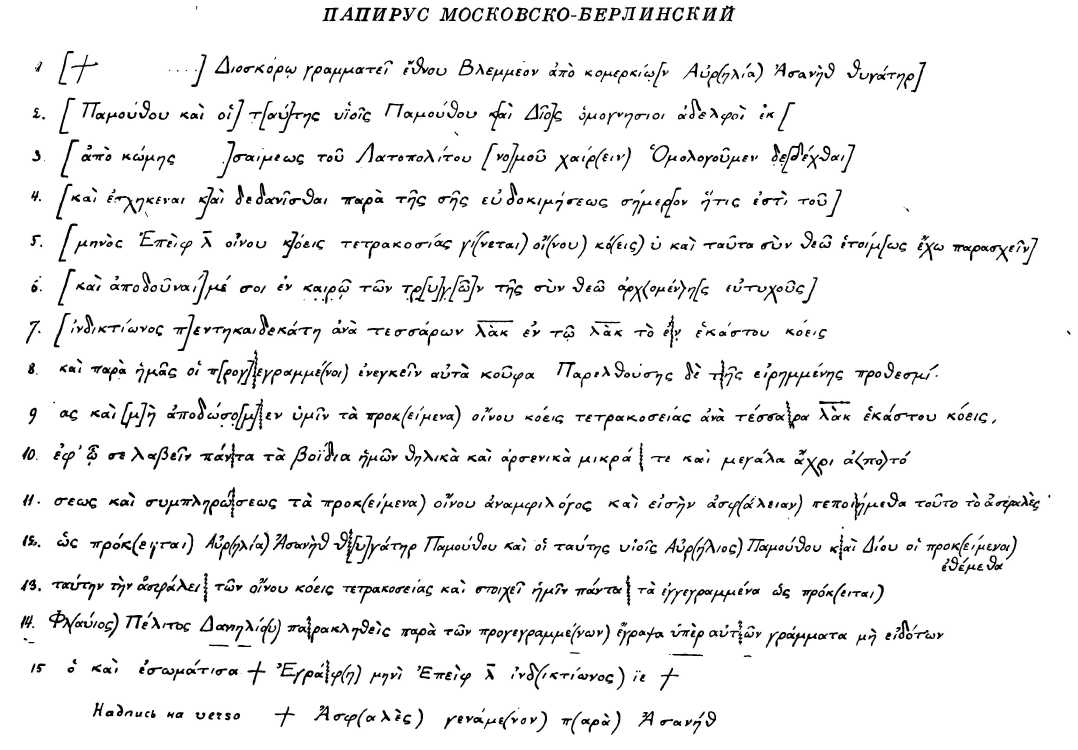 ПАПИРУС МОСКОВСКО-БЕРЛИНСКИЙ
1 [+ ....] Διοσκόρῳ γραμματεῖ ἔθνου Βλεμμέον ἀπὸ κομερκίω[ν Αὐρ(ηλία) Ἀσανὴθ θυγάτηρ]
2. [Παμούθου καὶ οἱ] τ[αύ]της υἱοῖς Παμούθου κ[αὶ Δῖο]ς ὁμογνησιοι ἀδελφοὶ ἐκ [
3 [ἀπὸ κώμης ]σαιμεως τοῦ Λατοπολίτου [νο]μοῦ χαίρ(ειν) Ὁμολογοῦμεν δε[δέχθαι]
4. [καὶ ἐσχηκεναι κ]αὶ δεδανῖσθαι παρὰ τῆς σῆς εὐδοκιμήσεως σήμερ[ον ἥτις ἐστὶ τοῦ]
5. [μηνὸς Ἐπεὶφ λ̄ οἴνου κ]όεις τετρακοσίας γί(νεται) οἴ(νου) κό(εις) ὐ καὶ ταῦτα σὺν θεῶ ἑτοίμ[ως ἔχω παρασχεῖν]
6. [καὶ ἀποδοῦναί] μέ σοι ἐν καιρῷ τῶν τρ[υ]γ[ῶ]ν τῆς σὺν θεῶ ἀρχ⟨ομέν⟩η[ς εὐτυχοῦς]
7. [ἰνδικτίωνος π]εντηκαιδεκάτη ἀνὰ τεσσάρων λὰκ ἐν τῷ λὰκ τὸ ἐν ἑκάστου κόεις
8. καὶ παρὰ ἡμᾶς οἱ π[ρογ]εγραμμέ(νοι) ἐνεγκεῖν αὐτὰ κοῦφα Παρελθούσης δὲ τῆς εἰρημμένης προθεσμί-
9 ας καὶ [μ]ὴ ἀποδώσο[μ]εν ὑμῖν τὰ προκ(είμενα) οἴνου κόεις τετρακοσειάς ἀνὰ τέσσαρα λὰκ ἑκάστου κόεις,
10. ἐφ' ᾧ σε λαβεῖν πάντα τὰ βοΐδια ἡμῶν θηλικὰ καὶ ἀρσενικὰ μικρά τε καὶ μεγάλα ἄχρι ἀ⟨πο⟩τό
11. σεως καὶ συμπληρώσεως τὰ προκ(είμενα) οἴνου ἀναμφιλόγος καὶ εἰσὴν ἀσφ(άλειαν) πεποιήμεθα τοῦτο τὸ ἀσφαλὲς
12. ὡς πρόκ(ειται) Αὐρ(ηλία) Ἀσανὴθ θ[υ]γάτηρ Παμούθου καὶ οἱ ταύτης υἱοῖς Αὐρ(ήλιος) Παμούθου καὶ Δίου οἱ προκ(είμενοι)
ἐθέμεθα
13. ταύτην τὴν ἀσφάλει τῶν οἴνου κόεις τετρακοσειάς καὶ στοιχεῖ ἡμῖν πάντα τὰ ἐγγεγραμμένα ὡς πρόκ(ειται)
14. Φλ(αύιος) Πέλιτος Δανιηλίο(υ) παρακληθεὶς παρὰ τῶν προγεγραμμέ(νων) ἔγραψα ὑπὲρ αὐτῶν γράμματα μὴ εἰδότων
15 ὁ καὶ ἐσωμάτισα + Ἐγράφ(η) μηνὶ Ἐπεὶφ λ̄ ἰνδ(ικτίωνος) ῑε +
Надпись на verso + Ἀσφ(αλὲς) γενάμε(νον) π(αρὰ) Ἀσανήθ